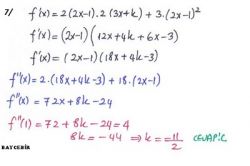 7/ f'(x) = 2(2x-1).2(3x+k) + 3.(2x-1)²
f'(x) = (2x-1)(12x+4k+6x-3)
f'(x) = (2x-1)(18x+4k-3)
f''(x) = 2.(18x+4k-3) + 18.(2x-1)
f''(x) = 72x + 8k - 24
f''(1) = 72 + 8k - 24 = 4
8k = -44 ⇒ k = -11/2 CEVAP: C
BAYGEBİR